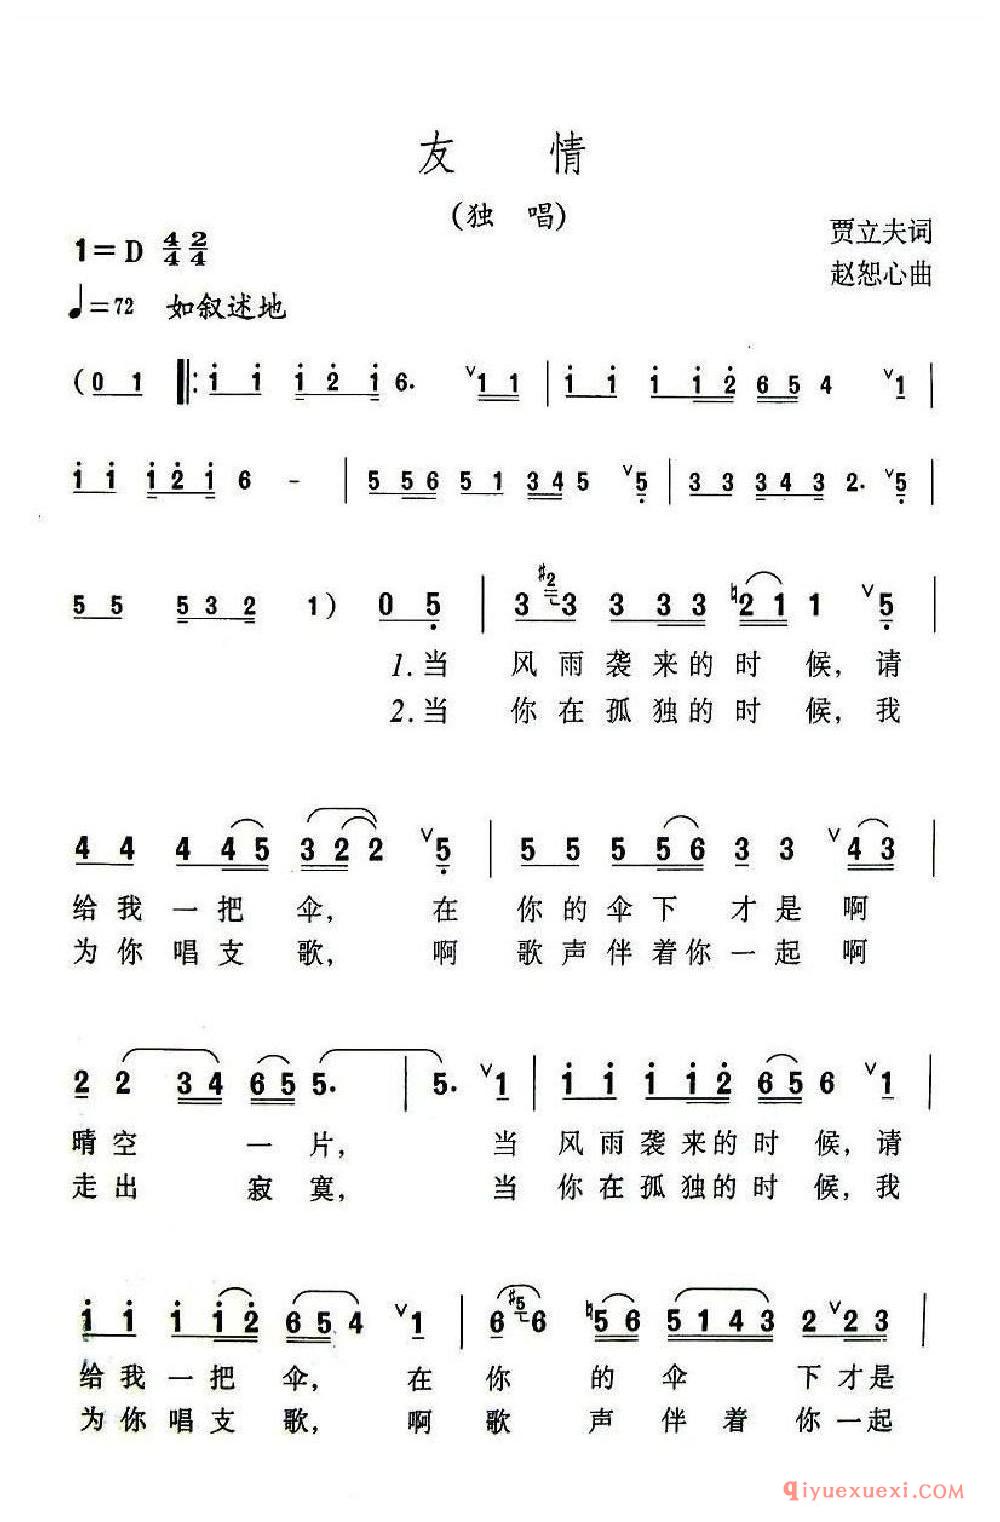 友 情
(独 唱)
贾立夫词
1=D 4/4 2/4
赵恕心曲
♩=72 如叙述地
(0 1 ‖: i i i 2̇ i 6. ∨1 1 | i i i i 2̇ 6 5 4 ∨1 |
i i i 2̇ i 6 - | 5 5 6 5 1 3 4 5 ∨5̣ | 3 3 3 4 3 2. ∨5̣ |
5 5 5 3 2 1) 0 5̣ | 3 #2 3 3 3 3 ♮2 1 1 ∨5̣ |
1.当 风雨袭来的时 候,请
2.当 你在孤独的时 候,我
4 4 4 4 5 3 2 2 ∨5̣ | 5 5 5 5 6 3 3 ∨4 3 |
给我一把 伞, 在 你的伞下 才是啊
为你唱支 歌, 啊 歌声伴着你一起啊
2 2 3 4 6 5 5. | 5. ∨1 | i i i i 2̇ 6 5 6 ∨1 |
晴空 一 片, 当 风雨袭来的时 候,请
走出 寂 寞, 当 你在孤独的时 候,我
i i i i 2̇ 6 5 4 ∨1 | 6 #5 6 ♮5 6 5 1 4 3 2 ∨2 3 |
给我一把 伞, 在 你 的 伞 下才是
为你唱支 歌, 啊 歌 声 伴 着 你一起
qiyuexuexi.COM